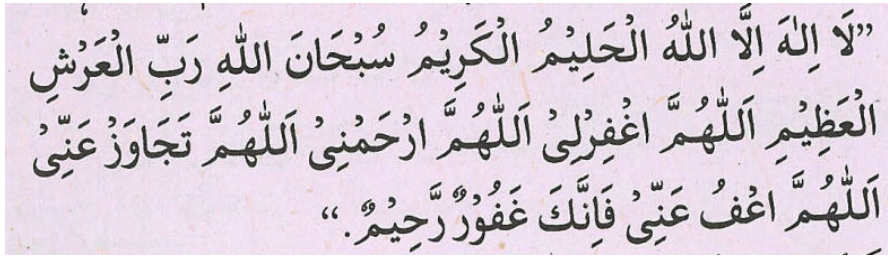 ”لَا اِلٰهَ اِلَّا اللّٰهُ الْحَلِيْمُ الْكَرِيْمُ سُبْحَانَ اللّٰهِ رَبِّ الْعَرْشِ
الْعَظِيْمِ اَللّٰهُمَّ اغْفِرْلِىْ اَللّٰهُمَّ ارْحَمْنِىْ اَللّٰهُمَّ تَجَاوَزْ عَنِّىْ
اَللّٰهُمَّ اعْفُ عَنِّىْ فَاِنَّكَ غَفُوْرٌ رَّحِيْمٌ.“